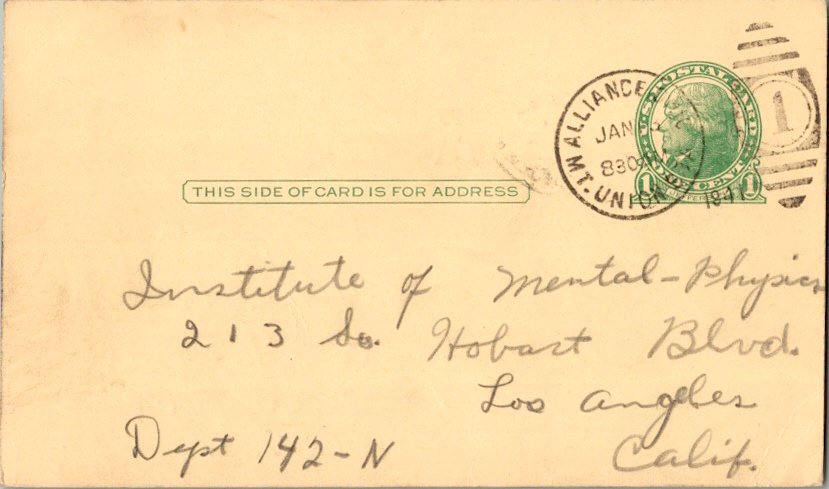 U.S. POSTAL CARD
ALLIANCE
JAN
830
MT. UNION
1941
1
1 CENT 1
THIS SIDE OF CARD IS FOR ADDRESS
Institute of Mental-Physics
213 So. Hobart Blvd.
Los Angeles
Dept 142-N Calif.